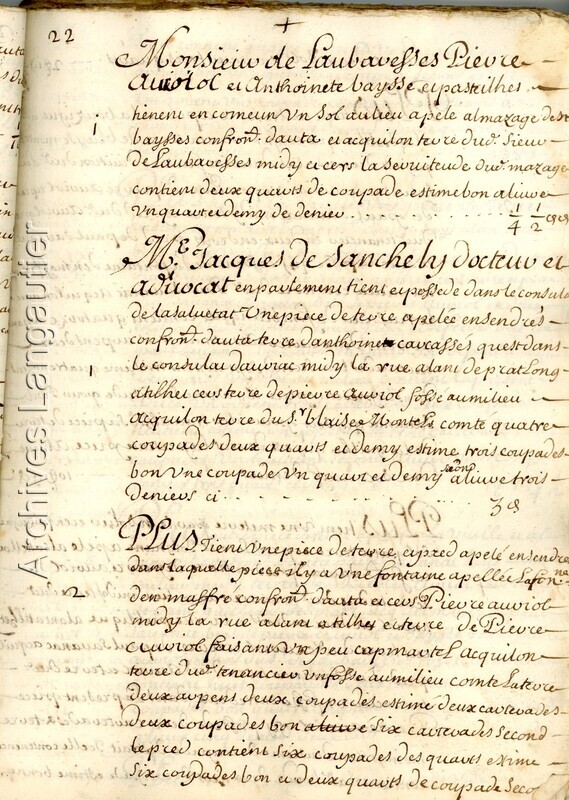 22
+
Monsieur de Laubaresses Pierre
auriol et Anthoinete baysse et pasteilhes
tienent en comeun Un sol au lieu apelé al mazage des
1 baysses confronᵗ. d'auta et acquilon terre dud. Sieur
de Laubaresses midy et cers la servitude dud. mazage
contient deux quarts de coupade estimé bon alivré
Un quart et demy de denier . . . . . . 1/4 1/2
Mᵉ. Jacques de Sanchely docteur et
advocat en parlement tient et possede dans le consula
de la salvetat Une piece de terre apelée en sendrés
confronᵗ. d'auta terre d'anthoinet caucasses quest dans
1 le consulat dauriac midy la rue alant de prat Long
atilhet cers terre de pierre auriol fosse au milieu
Acquilon terre du Sʳ. blaise Montels comte quatre
coupades deux quarts et demy estimé trois coupades
bon Une coupade Un quart et demy second alivré trois
Deniers ci . . . . . . 3 d
PLUS Tient Une piece de terre et pred apelé en sendre
dans laquelle piece il y a Une fontaine apellée La fonᵗⁿᵃ
2 den maffre confronᵗ. d'auta et cers Pierre auriol
midy la rue alant a tilhet et terre de Pierre
auriol faisant Un peu cap martel acquilon
terre dud. tenancier Un fosse au milieu comte La terre
deux arpens deux coupades estimé deux carterades
deux coupades bon alivré Six carterades Second
le pred contient Six coupades des quarts estimé
Six coupades bon et deux quarts de coupade Seco
Archives Langautier